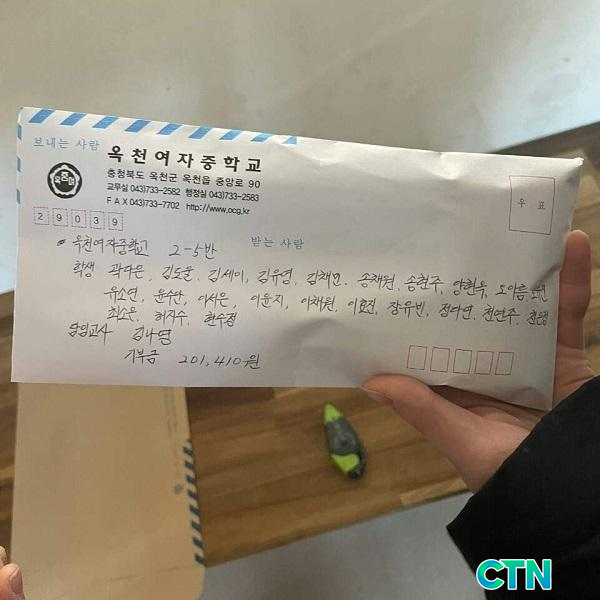 보내는 사람
옥천여자중학교
충청북도 옥천군 옥천읍 중앙로 90
교무실 043)733-2582 행정실 043)733-2583
FAX 043)733-7702 http://www.ocg.kr
우 표
29039
받는 사람
옥천여자중학교 2-5반
학생 곽다은, 김도율, 김세이, 김유영, 김채민, 송채원, 송현주, 양현옥, 오아름,
유소연, 윤수산, 이서은, 이윤지, 이채원, 이효진, 장유빈, 정다연, 천연주,
최소은, 허지수, 현수정
담임교사 김나영
기부금 201,410원
CTN